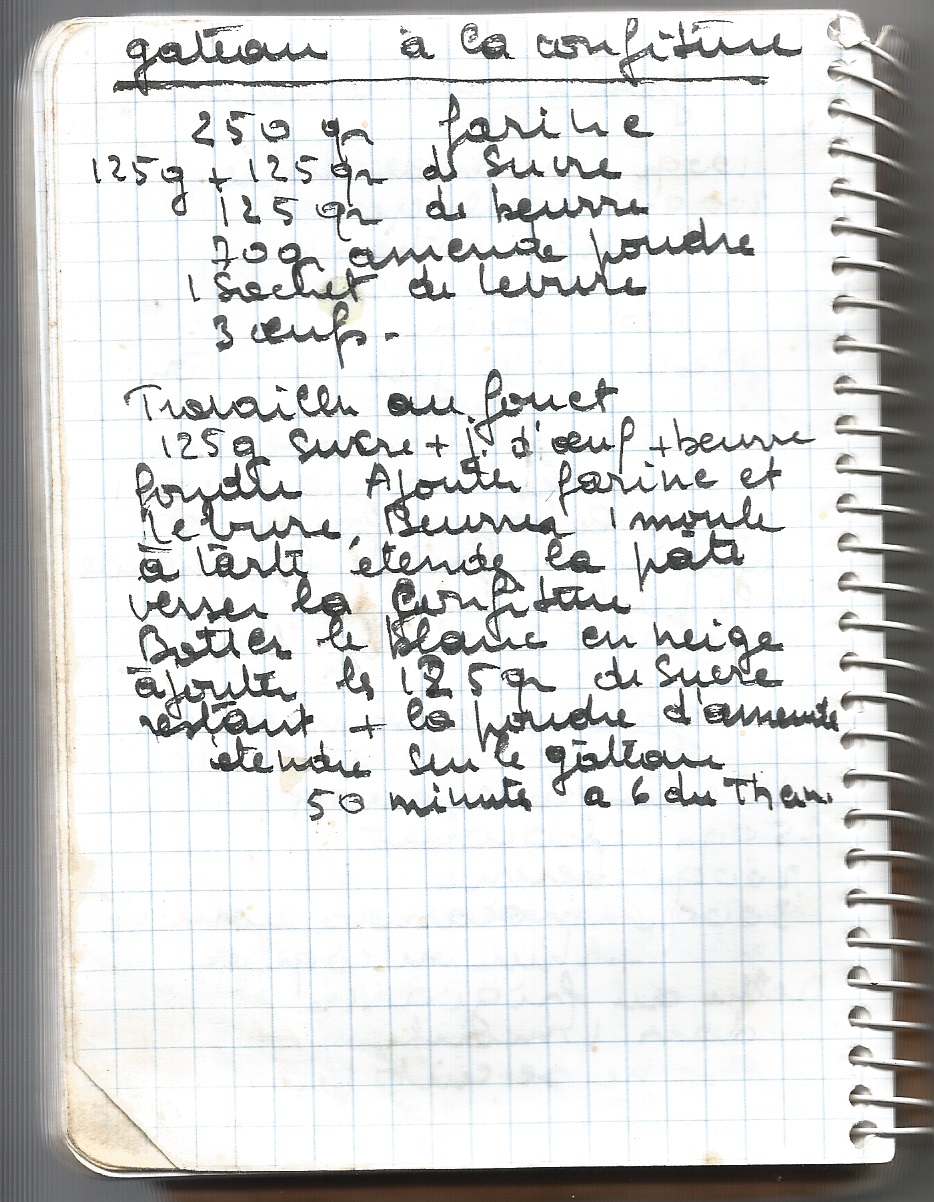 gateau à la confiture
250 gr farine
125g + 125 gr de Sucre
125 gr de beurre
70g amende poudre
1 Sachet de levure
3 œufs -
Travailler au fouet
125g Sucre + j. d'œuf + beurre
fondu Ajouter farine et
levure. Beurrer 1 moule
à tarte étendez la pâte
verser la Confiture
Battez le blanc en neige
ajouter les 125 gr de Sucre
restant + la poudre d'amende
étendre sur le gâteau
50 minute a 6 du Ther.